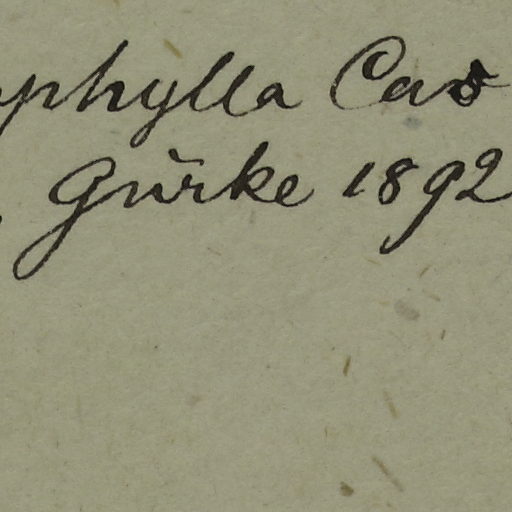 phylla Cav
Gürke 1892